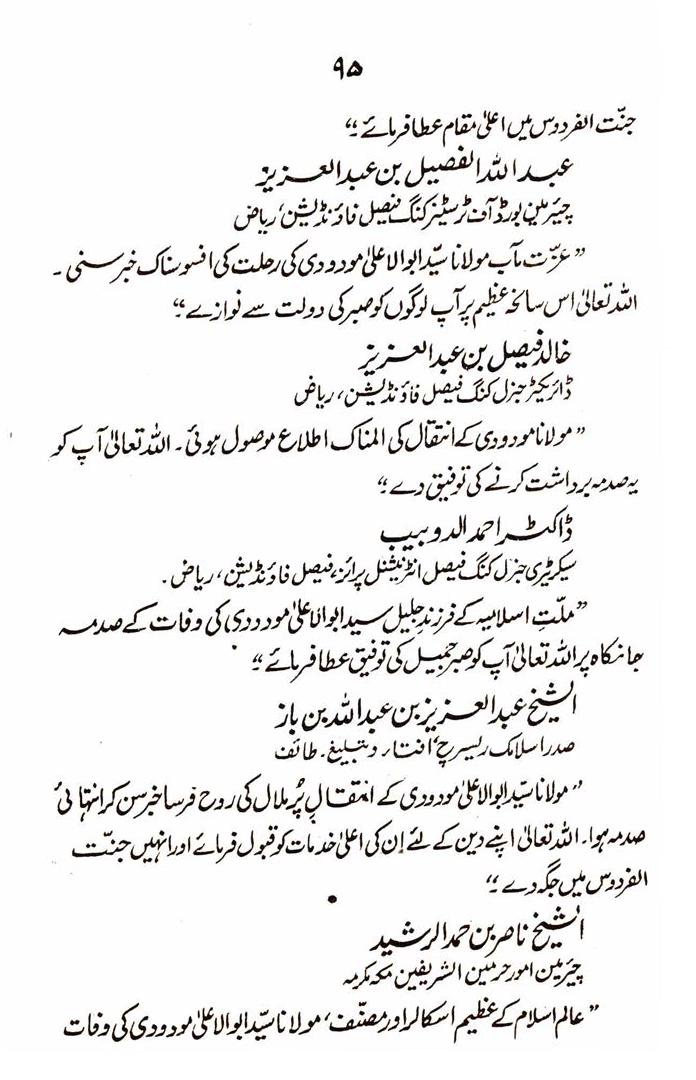 ۹۵
جنّت الفردوس میں اعلیٰ مقام عطا فرمائے ۔“
عبداللہ الفصیل بن عبدالعزیز
چیئرمین بورڈ آف ٹرسٹیز کنگ فیصل فاؤنڈیشن، ریاض
”عزّت مآب مولانا سیّد ابوالاعلیٰ مودودی کی رحلت کی افسوسناک خبر سنی ۔
اللہ تعالیٰ اس سانحہ عظیم پر آپ لوگوں کو صبر کی دولت سے نوازے ۔“
خالد فیصل بن عبدالعزیز
ڈائریکٹر جنرل کنگ فیصل فاؤنڈیشن، ریاض
”مولانا مودودی کے انتقال کی المناک اطلاع موصول ہوئی ۔ اللہ تعالیٰ آپ کو
یہ صدمہ برداشت کرنے کی توفیق دے ۔“
ڈاکٹر احمد الدوبیب
سیکریٹری جنرل کنگ فیصل انٹرنیشنل پرائز، فیصل فاؤنڈیشن، ریاض ۔
”ملّتِ اسلامیہ کے فرزندِ جلیل سید ابوالاعلیٰ مودودی کی وفات کے صدمہ
جانکاہ پر اللہ تعالیٰ آپ کو صبر جمیل کی توفیق عطا فرمائے ۔“
الشیخ عبدالعزیز بن عبداللہ بن باز
صدر اسلامک ریسرچ، افتار و تبلیغ ۔ طائف
”مولانا سیّد ابوالاعلیٰ مودودی کے انتقالِ پُر ملال کی روح فرسا خبر سن کر انتہائی
صدمہ ہوا ۔ اللہ تعالیٰ اپنے دین کے لئے اِن کی اعلیٰ خدمات کو قبول فرمائے اور انہیں جنّت
الفردوس میں جگہ دے ۔“
الشیخ ناصر بن حمد الرشید
چیئرمین امور حرمین الشریفین مکہ مکرمہ
”عالم اسلام کے عظیم اسکالر اور مصنّف، مولانا سیّد ابوالاعلیٰ مودودی کی وفات